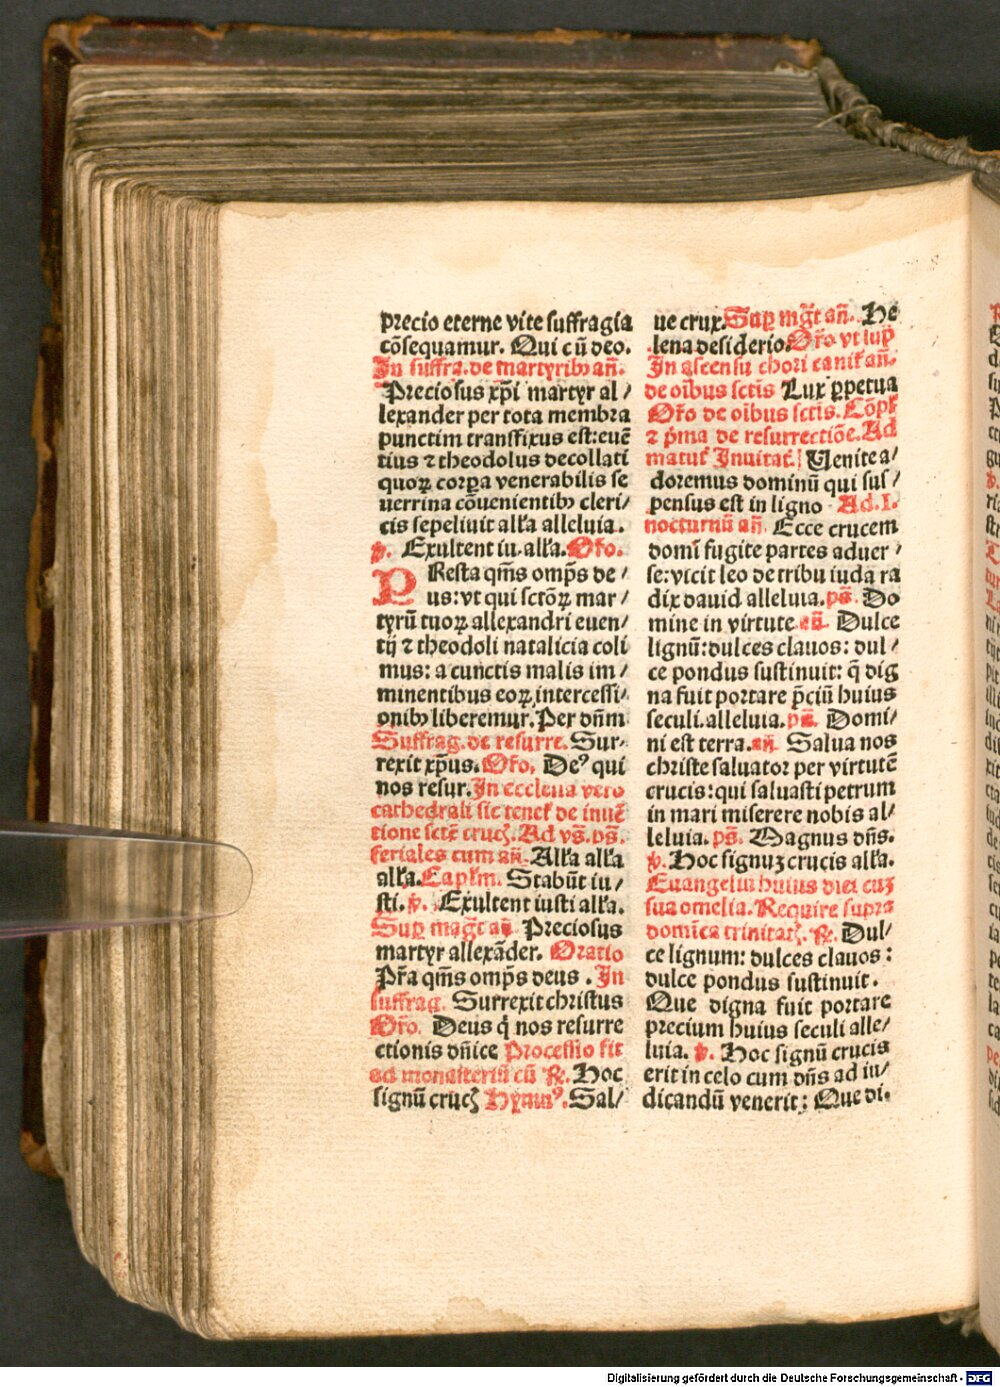 precio eterne vite suffragia
cōsequamur. Qui cū deo.
In suffra. de martyribꝯ añ.
Preciosus xp̄i martyr al/
lexander per tota membra
punctim transfixus est: euē
tius ⁊ theodolus decollati
quoꝝ corpꝑa venerabilis se
uerrina cōuenientibꝯ cleri/
cis sepeliuit alľa alleluia.
℣. Exultent iu. alľa. Oŕo.
PResta qm̄s omp̄s de/
us: vt qui sctōꝝ mar/
tyrū tuoꝝ allexandri euen/
tij ⁊ theodoli natalicia coli
mus: a cunctis malis im/
minentibus eoꝝ intercessi/
onibꝯ liberemur. Per dn̄m
Suffrag. de resurre. Sur-
rexit xp̄us. Oŕo. Deꝰ qui
nos resur. In ecclesia vero
cathedrali sic tenet᷒ de inuē
tione scte᷒ cruc᷒. Ad vs̄. ps̄.
feriales cum añ. Alľa alľa
alľa. Capľm. Stabūt iu/
sti. ℣. Exultent iusti alľa.
Sup mag̃t añ Preciosus
martyr allexāder. Oratio
Pŕa qm̄s omp̄s deus. In
suffrag. Surrexit christus
Oŕo. Deus q̇ nos resurre
ctionis dn̄ice Processio fit
ad monasteriū cū ℟. Hoc
signū cruc᷒ Hymnꝰ. Sal/
ue crux. Suꝑ mg̃t añ. He
lena desiderio. Oŕo vt sup̄
In ascensu chori canit᷒ añ.
de oībus sctis Lux ꝑpetua
Oŕo de oībus sctis. Cōpľ
⁊ p̄ma de resurrectiōe. Ad
matut᷒ Inuitat᷒. Uenite a/
doremus dominū qui sus/
pensus est in ligno Ad. I.
nocturnū añ. Ecce crucem
domī fugite partes aduer/
se: vicit leo de tribu iuda ra
dix dauid alleluia. ps̄. Do
mine in virtute añ. Dulce
lignū: dulces clauos: dul/
ce pondus sustinuit: q̄ dig
na fuit portare p̄ciū huius
seculi. alleluia. ps̄. Domi/
ni est terra. añ. Salua nos
christe saluator per virtutē
crucis: qui saluasti petrum
in mari miserere nobis al/
leluia. ps̄. Magnus dn̄s.
℣. Hoc signuꝫ crucis alľa.
Euangeliū huius diei cuꝫ
sua omelia. Require supra
domīca trinitat᷒. ℟. Dul/
ce lignum: dulces clauos:
dulce pondus sustinuit.
Que digna fuit portare
precium huius seculi alle/
luia. ℣. Hoc signū crucis
erit in celo cum dn̄s ad iu/
dicandū venerit: Que di.
Digitalisierung gefördert durch die Deutsche Forschungsgemeinschaft - DFG